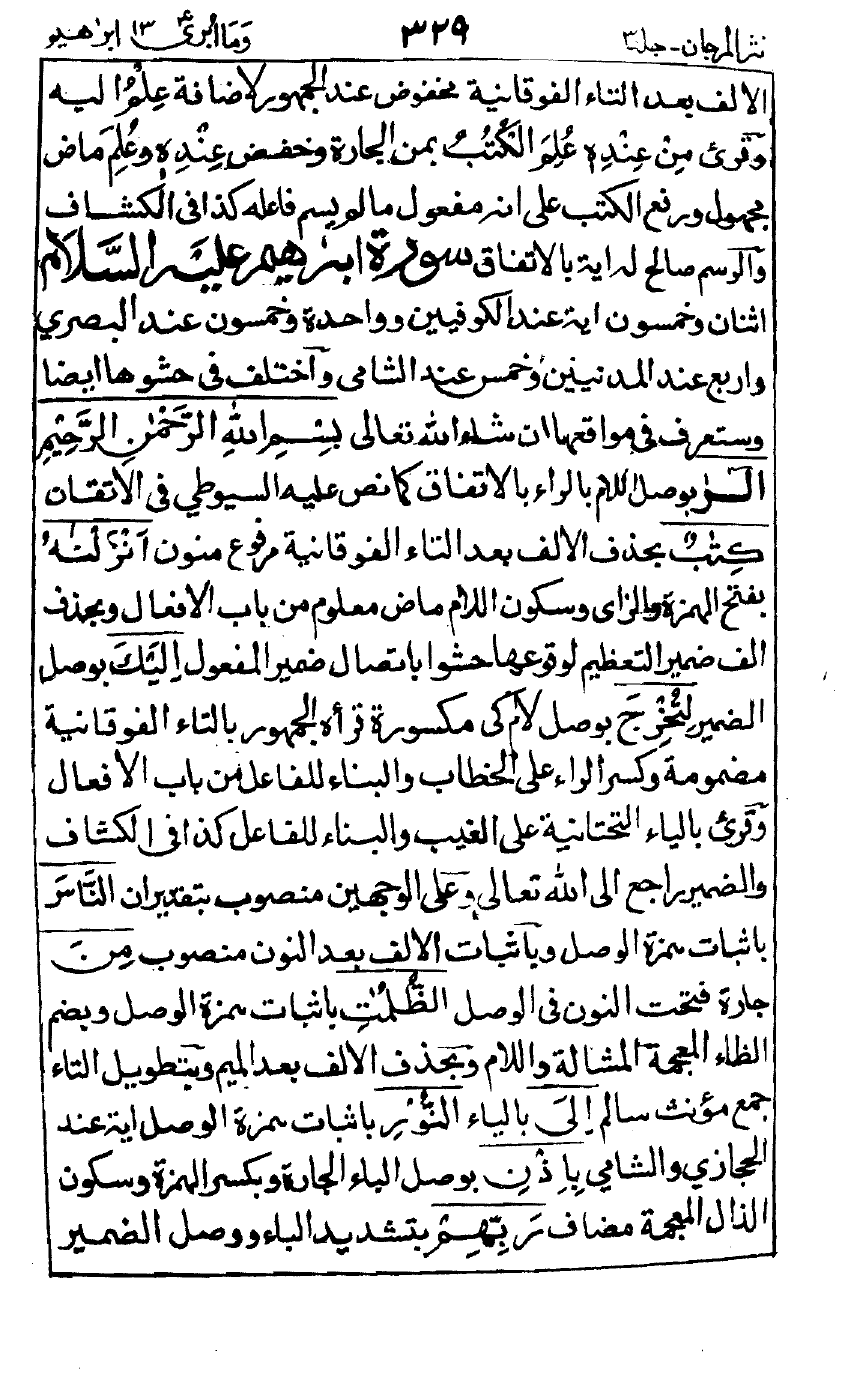 نثر المرجان - جلد ٣ ٣٢٩ وما ابرئ ١٣ ابرٰهيم
الالف بعد التاء الفوقانية مخفوض عند الجمهور لاضافة عِلْمُ اليه
وقرئ مِنْ عِنْدِهٖ عُلِمَ الْكِتٰبُ بمن الجارة وخفض عِنْدِهٖ وعُلِمَ ماض
مجهول ورفع الكتب على انه مفعول مالم يسم فاعله كذا فى الكشاف
والرسم صالح له اية بالاتفاق سورة ابرٰهيم عليه السَّلام
اثنان وخمسون اية عند الكوفيين وواحدة وخمسون عند البصري
واربع عند المدنيين وخمس عند الشامى واختلف فى حشوها ايضا
وستعرف فى مواقعها ان شاء الله تعالى بِسْمِ اللهِ الرَّحْمٰنِ الرَّحِيْمِ
الٓرٰ بوصل اللام بالراء بالاتفاق كما نص عليه السيوطي فى الاتقان
كِتٰبٌ بحذف الالف بعد التاء الفوقانية مرفوع منون اَنْزَلْنٰهُ
بفتح الهمزة والزاى وسكون اللام ماض معلوم من باب الافعال وبحذف
الف ضمير التعظيم لوقوعها حشوا باتصال ضمير المفعول اِلَيْكَ بوصل
الضمير لِتُخْرِجَ بوصل لام كى مكسورة قرأه الجمهور بالتاء الفوقانية
مضمومة وكسر الراء على الخطاب والبناء للفاعل من باب الافعال
وقرئ بالياء التحتانية على الغيب والبناء للفاعل كذا فى الكشاف
والضمير راجع الى الله تعالى وعلى الوجهين منصوب بتقدير ان النَّاسَ
باثبات همزة الوصل وباثبات الالف بعد النون منصوب مِنَ
جارة فتحت النون فى الوصل الظُّلُمٰتِ باثبات همزة الوصل وبضم
الظاء المعجمة المشالة واللام وبحذف الالف بعد الميم وبتطويل التاء
جمع مؤنث سالم اِلَى بالياء النُّوْرِ باثبات همزة الوصل اية عند
الحجازي والشامي بِاِذْنِ بوصل الباء الجارة وبكسر الهمزة وسكون
الذال المعجمة مضاف رَبِّهِمْ بتشديد الباء ووصل الضمير